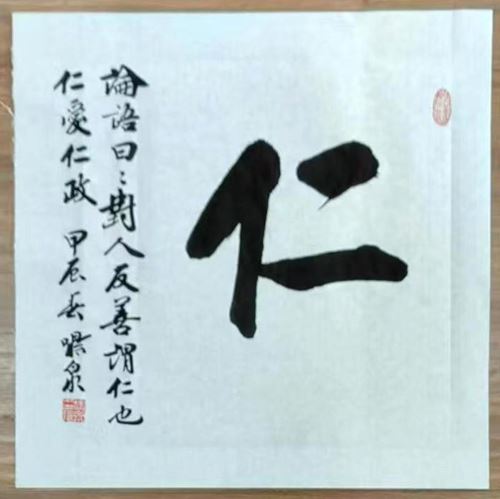 仁
論語曰：對人反善謂仁也
仁愛仁政 甲辰春 泉